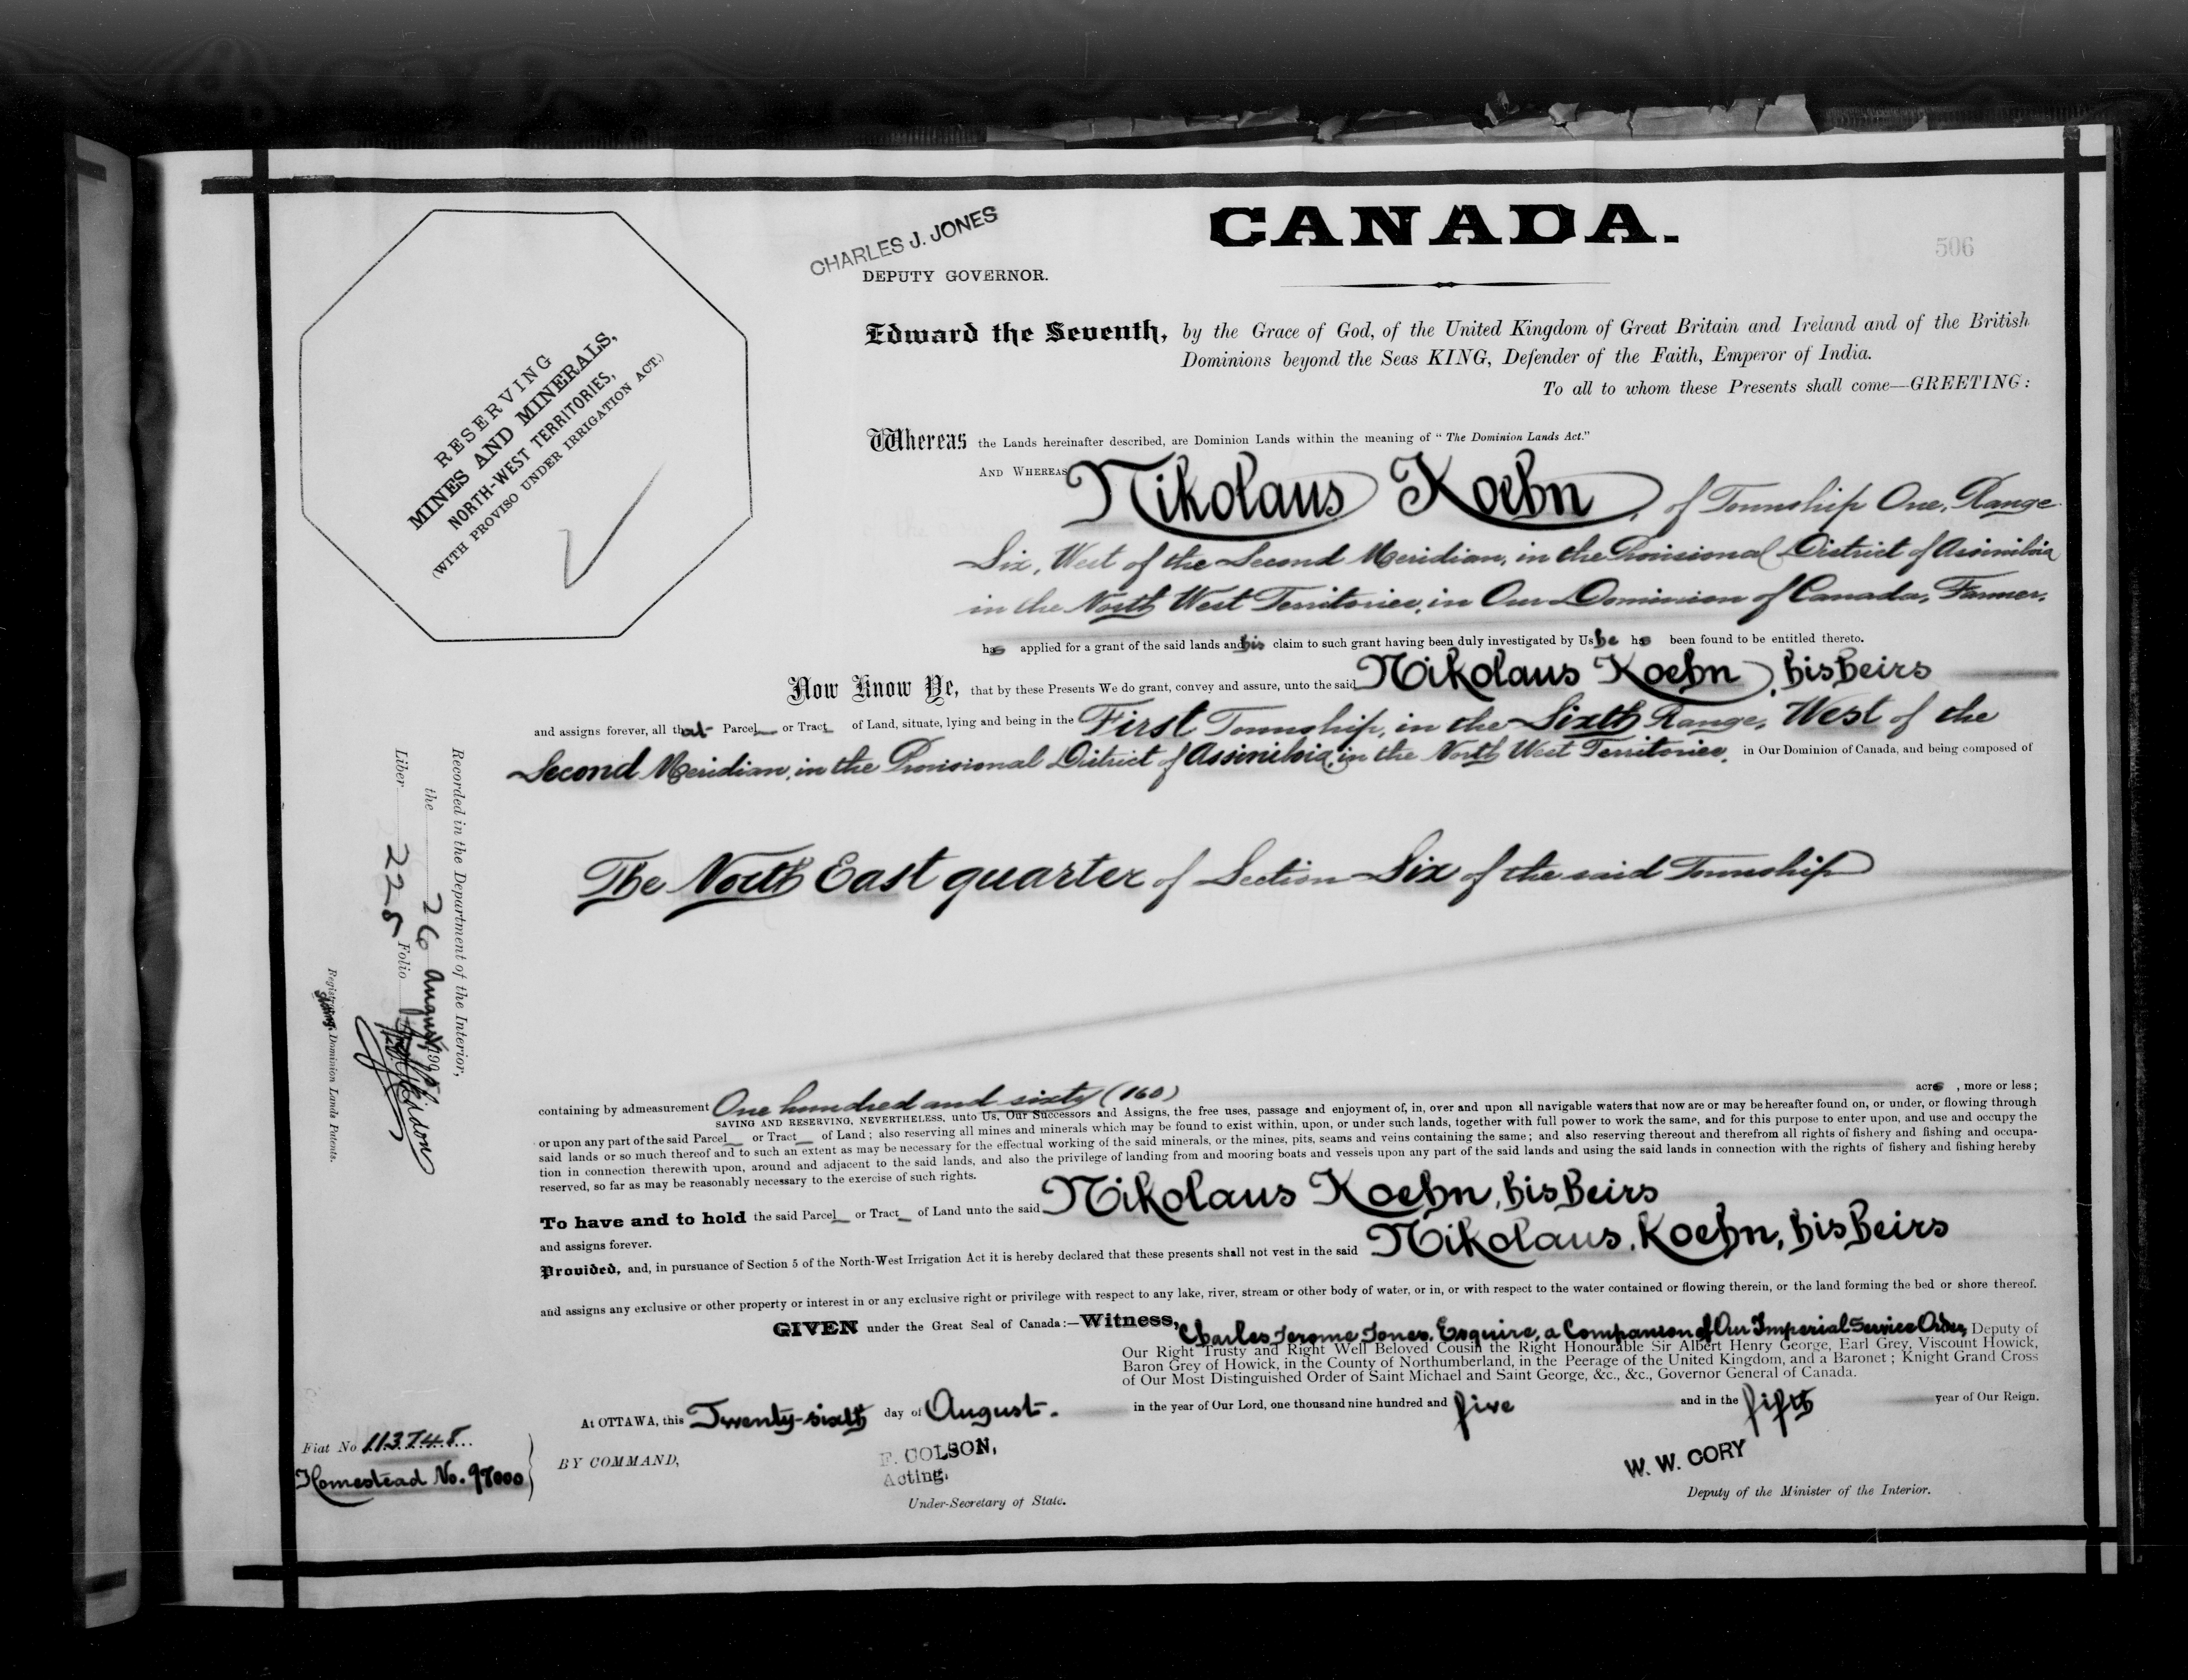 CANADA.
506
CHARLES J. JONES
DEPUTY GOVERNOR.
RESERVING
MINES AND MINERALS,
NORTH-WEST TERRITORIES,
(WITH PROVISO UNDER IRRIGATION ACT.)
Edward the Seventh, by the Grace of God, of the United Kingdom of Great Britain and Ireland and of the British
Dominions beyond the Seas KING, Defender of the Faith, Emperor of India.
To all to whom these Presents shall come—GREETING:
Whereas the Lands hereinafter described, are Dominion Lands within the meaning of "The Dominion Lands Act."
AND WHEREAS Nikolaus Koehn, of Township One, Range
Six, West of the Second Meridian, in the Provisional District of Assiniboia
in the North West Territories, in Our Dominion of Canada, Farmer,
has applied for a grant of the said lands and his claim to such grant having been duly investigated by Us he has been found to be entitled thereto.
Now Know Ye, that by these Presents We do grant, convey and assure, unto the said Nikolaus Koehn, his heirs
and assigns forever, all that Parcel or Tract of Land, situate, lying and being in the First Township, in the Sixth Range, West of the
Second Meridian, in the Provisional District of Assiniboia, in the North West Territories, in Our Dominion of Canada, and being composed of
The North East quarter of Section Six of the said Township
containing by admeasurement One hundred and sixty (160) acres, more or less;
SAVING AND RESERVING, NEVERTHELESS, unto Us, Our Successors and Assigns, the free uses, passage and enjoyment of, in, over and upon all navigable waters that now are or may be hereafter found on, or under, or flowing through
or upon any part of the said Parcel or Tract of Land; also reserving all mines and minerals which may be found to exist within, upon, or under such lands, together with full power to work the same, and for this purpose to enter upon, and use and occupy the
said lands or so much thereof and to such an extent as may be necessary for the effectual working of the said minerals, or the mines, pits, seams and veins containing the same; and also reserving thereout and therefrom all rights of fishery and fishing and occupa-
tion in connection therewith upon, around and adjacent to the said lands, and also the privilege of landing from and mooring boats and vessels upon any part of the said lands and using the said lands in connection with the rights of fishery and fishing hereby
reserved, so far as may be reasonably necessary to the exercise of such rights.
To have and to hold the said Parcel or Tract of Land unto the said Nikolaus Koehn, his heirs
and assigns forever.
Provided, and, in pursuance of Section 5 of the North-West Irrigation Act it is hereby declared that these presents shall not vest in the said Nikolaus, Koehn, his heirs
and assigns any exclusive or other property or interest in or any exclusive right or privilege with respect to any lake, river, stream or other body of water, or in, or with respect to the water contained or flowing therein, or the land forming the bed or shore thereof.
GIVEN under the Great Seal of Canada:—Witness, Charles Jerome Jones, Esquire, a Companion of Our Imperial Service Order, Deputy of
Our Right Trusty and Right Well Beloved Cousin the Right Honourable Sir Albert Henry George, Earl Grey, Viscount Howick,
Baron Grey of Howick, in the County of Northumberland, in the Peerage of the United Kingdom, and a Baronet; Knight Grand Cross
of Our Most Distinguished Order of Saint Michael and Saint George, &c., &c., Governor General of Canada.
At OTTAWA, this Twenty-sixth day of August. in the year of Our Lord, one thousand nine hundred and five and in the fifth year of Our Reign.
BY COMMAND,
F. COLSON,
Acting.
Under-Secretary of State.
W. W. CORY
Deputy of the Minister of the Interior.
Fiat No 113748
Homestead No. 97000
Recorded in the Department of the Interior,
the 26 August, 1905
Liber 225 Folio
Registrar, Dominion Lands Patents.